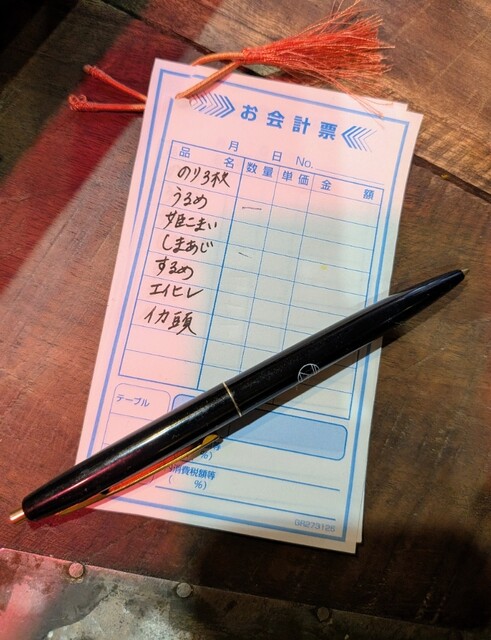 お会計票
月 日 No.
品名 数量 単価 金額
のり3枚
うるめ 一
姫こまい
しまあじ
するめ
エイヒレ
イカ頭
テーブル
等
%)
消費税額等
( %)
GR273126